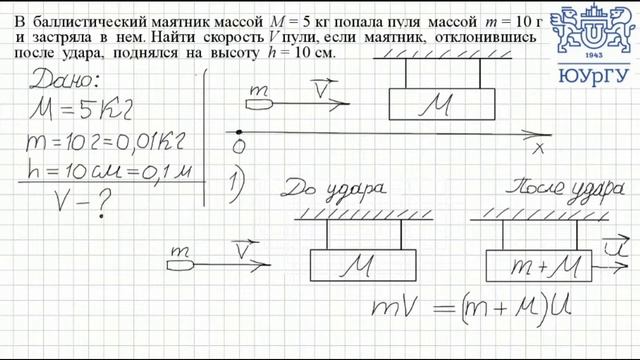 В баллистический маятник массой M = 5 кг попала пуля массой m = 10 г
и застряла в нем. Найти скорость V пули, если маятник, отклонившись
после удара, поднялся на высоту h = 10 см.
1943
ЮУрГУ
Дано:
M = 5 кг
m = 10 г = 0,01 кг
h = 10 см = 0,1 м
V - ?
m V M
0 x
1) До удара После удара
m V M m + M U
mV = (m + M)U